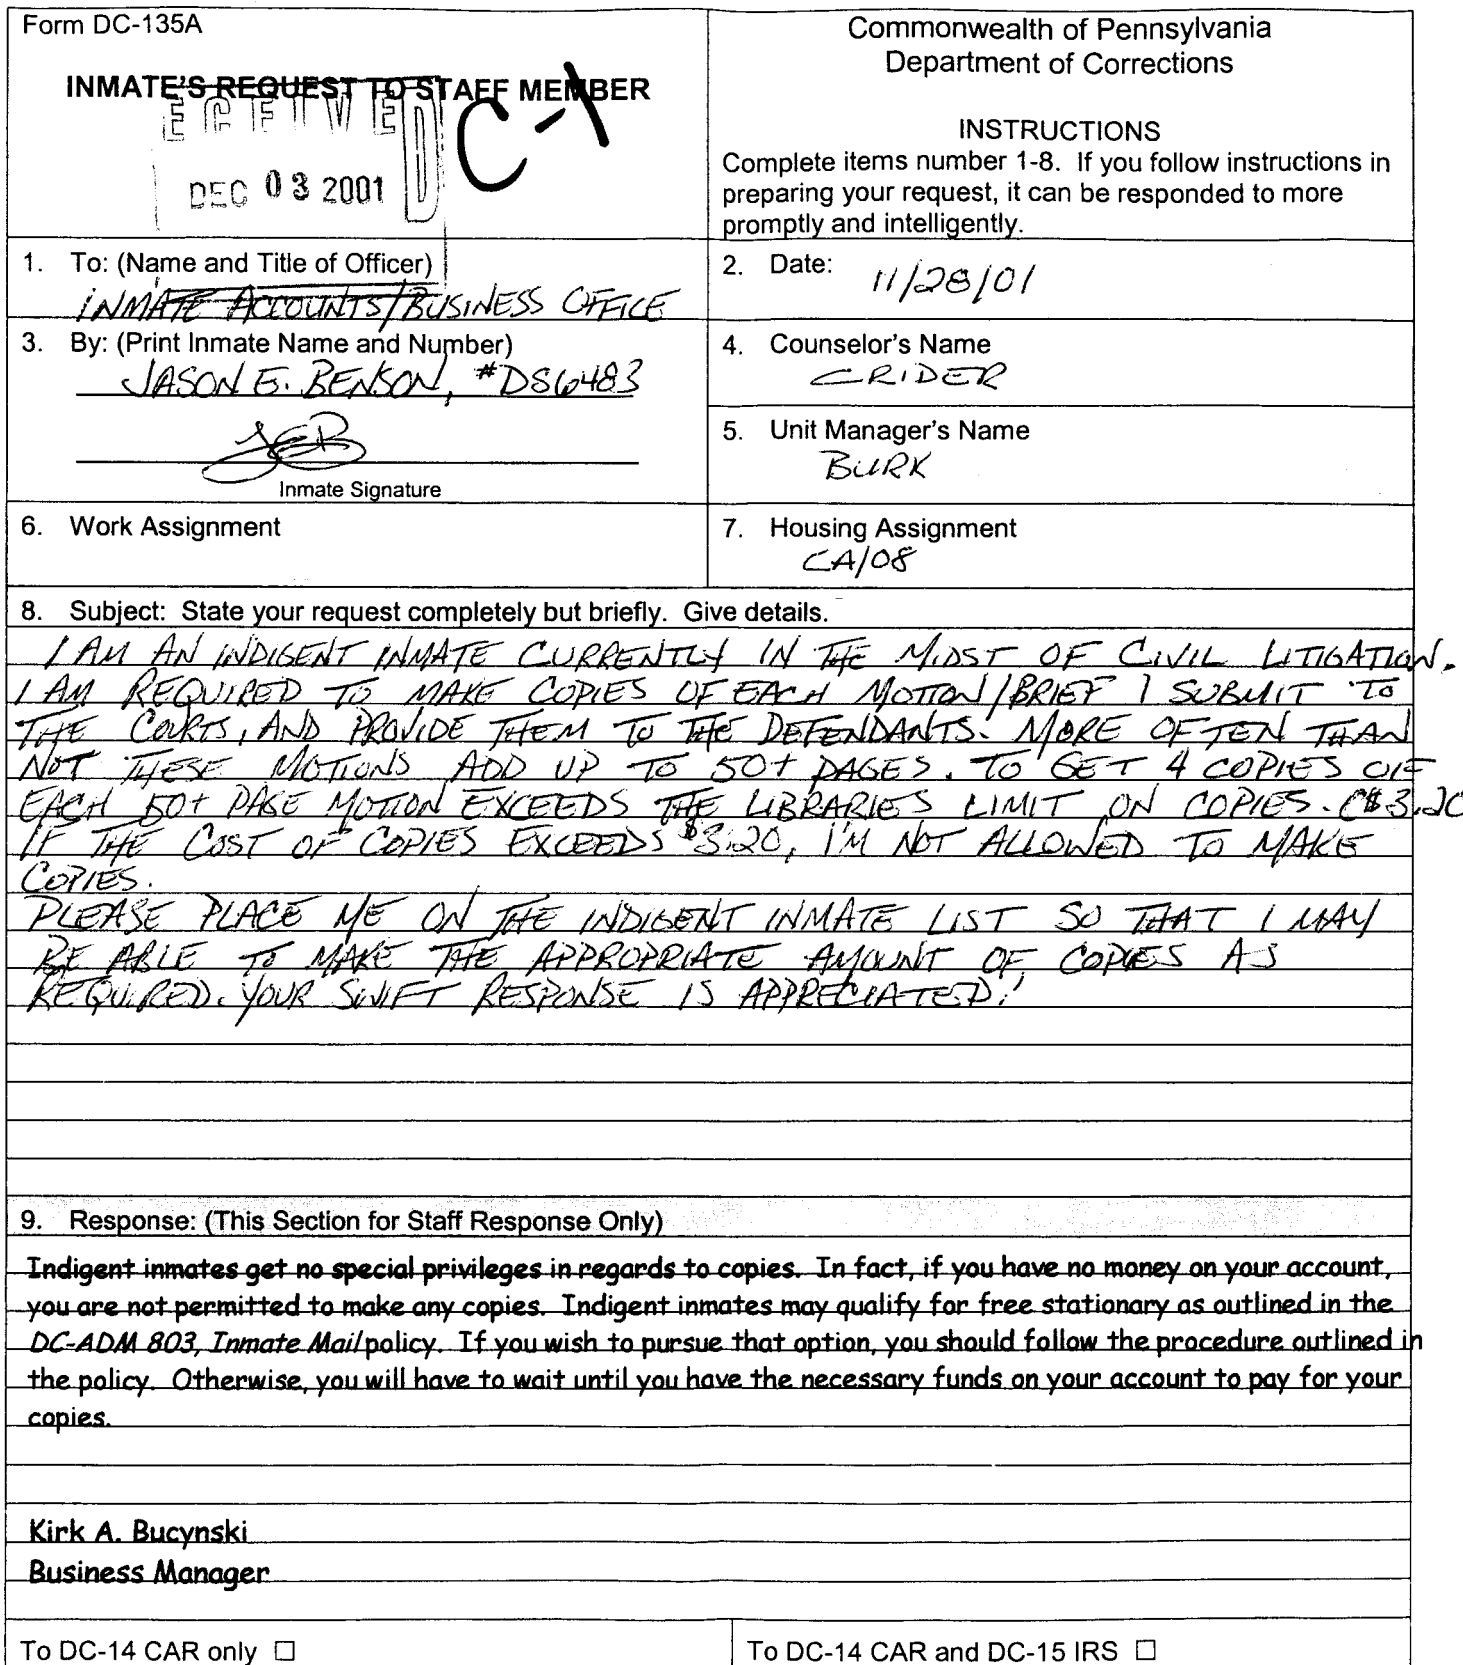 Form DC-135A
INMATE'S REQUEST TO STAFF MEMBER
ECEIVED
C-1
DEC 03 2001
Commonwealth of Pennsylvania
Department of Corrections
INSTRUCTIONS
Complete items number 1-8. If you follow instructions in
preparing your request, it can be responded to more
promptly and intelligently.
1. To: (Name and Title of Officer)
INMATE ACCOUNTS/BUSINESS OFFICE
2. Date: 11/28/01
3. By: (Print Inmate Name and Number)
JASON E. BENSON, #DS6483
JEB
Inmate Signature
4. Counselor's Name
CRIDER
5. Unit Manager's Name
BURK
6. Work Assignment
7. Housing Assignment
CA/08
8. Subject: State your request completely but briefly. Give details.
I AM AN INDIGENT INMATE CURRENTLY IN THE MIDST OF CIVIL LITIGATION.
I AM REQUIRED TO MAKE COPIES OF EACH MOTION/BRIEF I SUBMIT TO
THE COURTS, AND PROVIDE THEM TO THE DEFENDANTS. MORE OFTEN THAN
NOT THESE MOTIONS ADD UP TO 50+ PAGES. TO GET 4 COPIES OF
EACH 50+ PAGE MOTION EXCEEDS THE LIBRARIES LIMIT ON COPIES. ($3.20
IF THE COST OF COPIES EXCEEDS $3.20, I'M NOT ALLOWED TO MAKE
COPIES.
PLEASE PLACE ME ON THE INDIGENT INMATE LIST SO THAT I MAY
BE ABLE TO MAKE THE APPROPRIATE AMOUNT OF COPIES AS
REQUIRED. YOUR SWIFT RESPONSE IS APPRECIATED!
9. Response: (This Section for Staff Response Only)
Indigent inmates get no special privileges in regards to copies. In fact, if you have no money on your account,
you are not permitted to make any copies. Indigent inmates may qualify for free stationary as outlined in the
DC-ADM 803, Inmate Mail policy. If you wish to pursue that option, you should follow the procedure outlined in
the policy. Otherwise, you will have to wait until you have the necessary funds on your account to pay for your
copies.
Kirk A. Bucynski
Business Manager
To DC-14 CAR only ☐
To DC-14 CAR and DC-15 IRS ☐